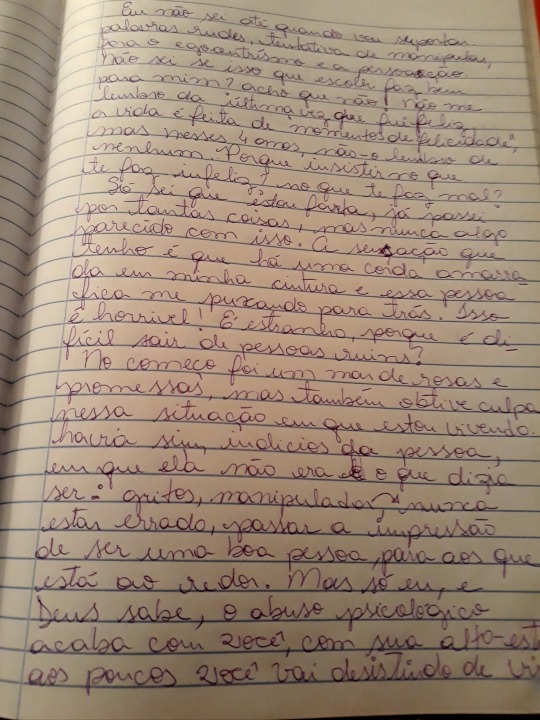 Eu não sei até quando vou suportar
palavras rudes, tentativa de manipular,
fora o egocentrismo e a
não sei se isso que escolhi faz bem
para mim? acho que não! não me
lembro da última vez que fui feliz
a vida é feita de momentos de felicidade",
mas nesses 4 anos, não o lembro de
nenhum. Porque insistir no que
te faz infeliz? no que te faz mal?
Só sei que estou farta, já passei
por tantas coisas, mas nunca algo
parecido com isso. A sensação que
tenho é que há uma corda amarra-
da em minha cintura e essa pessoa
fica me puxando para trás. Isso
é horrível! É estranho, porque é di-
fícil sair de pessoas ruins?
No começo foi um mar de rosas e
promessas, mas também obtive culpa
nessa situação em que estou vivendo.
havia sim, indicios da pessoa,
em que ela não era o que dizia
ser: gritos, manipulador, nunca
estar errado, passar a impressão
de ser uma boa pessoa, para aos que
está ao redor. Mas só eu, e
Deus sabe, o abuso psicológico
acaba com você, com sua alto-est
aos poucos você vai desistindo de vi